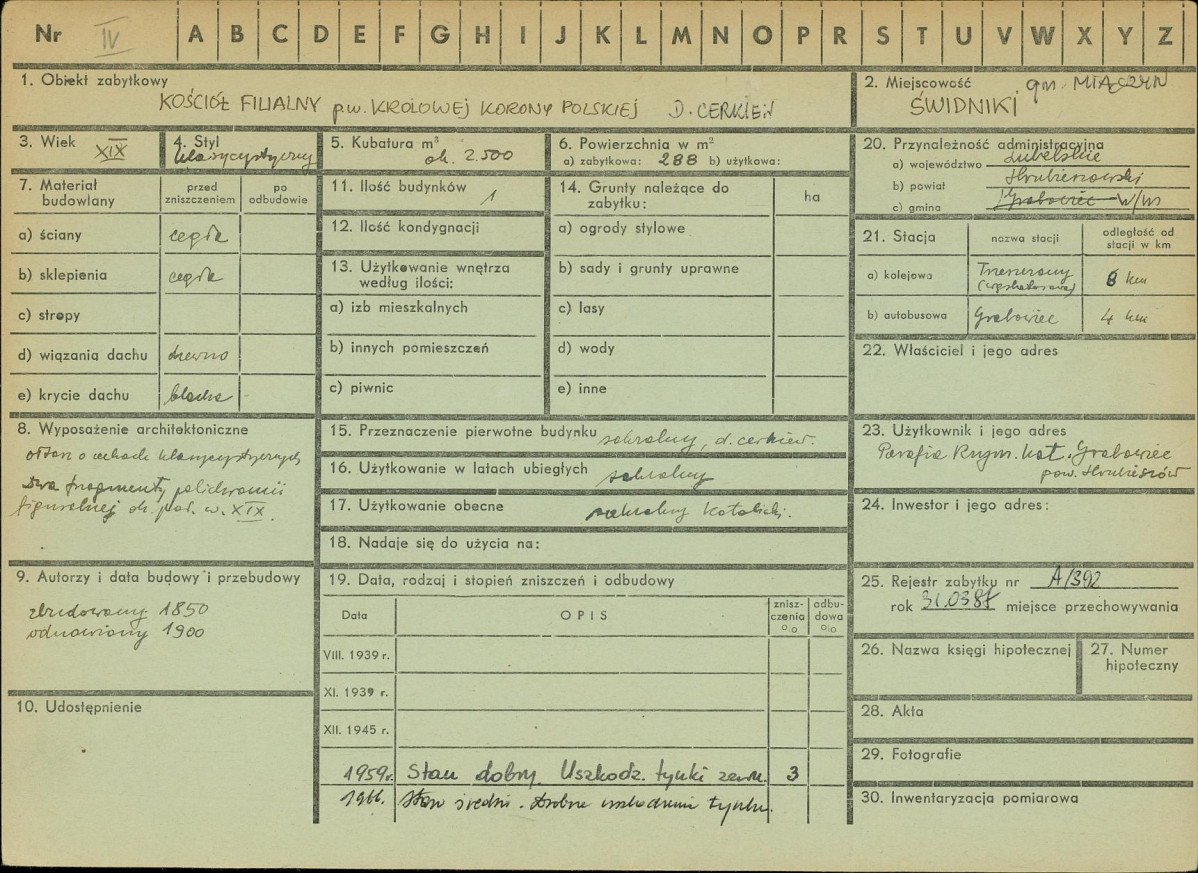 Nr IV A B C D E F G H I J K L M N O P R S T U V W X Y Z
1. Obiekt zabytkowy
KOŚCIÓŁ FILIALNY p.w. KRÓLOWEJ KORONY POLSKIEJ D. CERKIEW
2. Miejscowość gm. MIĄCZYN
ŚWIDNIKI
3. Wiek XIX
4. Styl
klasycystyczny
5. Kubatura m³
ok. 2.500
6. Powierzchnia w m²
a) zabytkowa: 288 b) użytkowa:
7. Materiał budowlany
przed zniszczeniem
po odbudowie
a) ściany cegła
b) sklepienia cegła
c) stropy
d) wiązania dachu drewno
e) krycie dachu blacha
8. Wyposażenie architektoniczne
ołtarz o cechach klasycystycznych
dwa fragmenty polichromii
figuralnej ok. poł. w. XIX.
9. Autorzy i data budowy i przebudowy
zbudowany 1850
odnowiony 1900
10. Udostępnienie
11. Ilość budynków
1
12. Ilość kondygnacji
13. Użytkowanie wnętrza
według ilości:
a) izb mieszkalnych
b) innych pomieszczeń
c) piwnic
14. Grunty należące do
zabytku:
ha
a) ogrody stylowe
b) sady i grunty uprawne
c) lasy
d) wody
e) inne
15. Przeznaczenie pierwotne budynku sakralny, d. cerkiew.
16. Użytkowanie w latach ubiegłych sakralny
17. Użytkowanie obecne sakralny katolicki.
18. Nadaje się do użycia na:
19. Data, rodzaj i stopień zniszczeń i odbudowy
Data
OPIS
znisz-
czenia
%
odbu-
dowa
%
VIII. 1939 r.
XI. 1939 r.
XII. 1945 r.
1959r. Stan dobry. Uszkodz. tynki zewn. 3
1966. Stan średni. Drobne uszkodzenia tynku.
20. Przynależność administracyjna
a) województwo Lubelskie
b) powiat Hrubieszowski
c) gmina Grabowiec w/m
21. Stacja
nazwa stacji
odległość od
stacji w km
a) kolejowa
(wąskotorowa)
km
b) autobusowa Grabowiec 4 km
22. Właściciel i jego adres
23. Użytkownik i jego adres
Parafia Rzym. kat. Grabowiec
pow. Hrubieszów
24. Inwestor i jego adres:
25. Rejestr zabytku nr A/392
rok 31.03.87 miejsce przechowywania
26. Nazwa księgi hipotecznej
27. Numer
hipoteczny
28. Akta
29. Fotografie
30. Inwentaryzacja pomiarowa